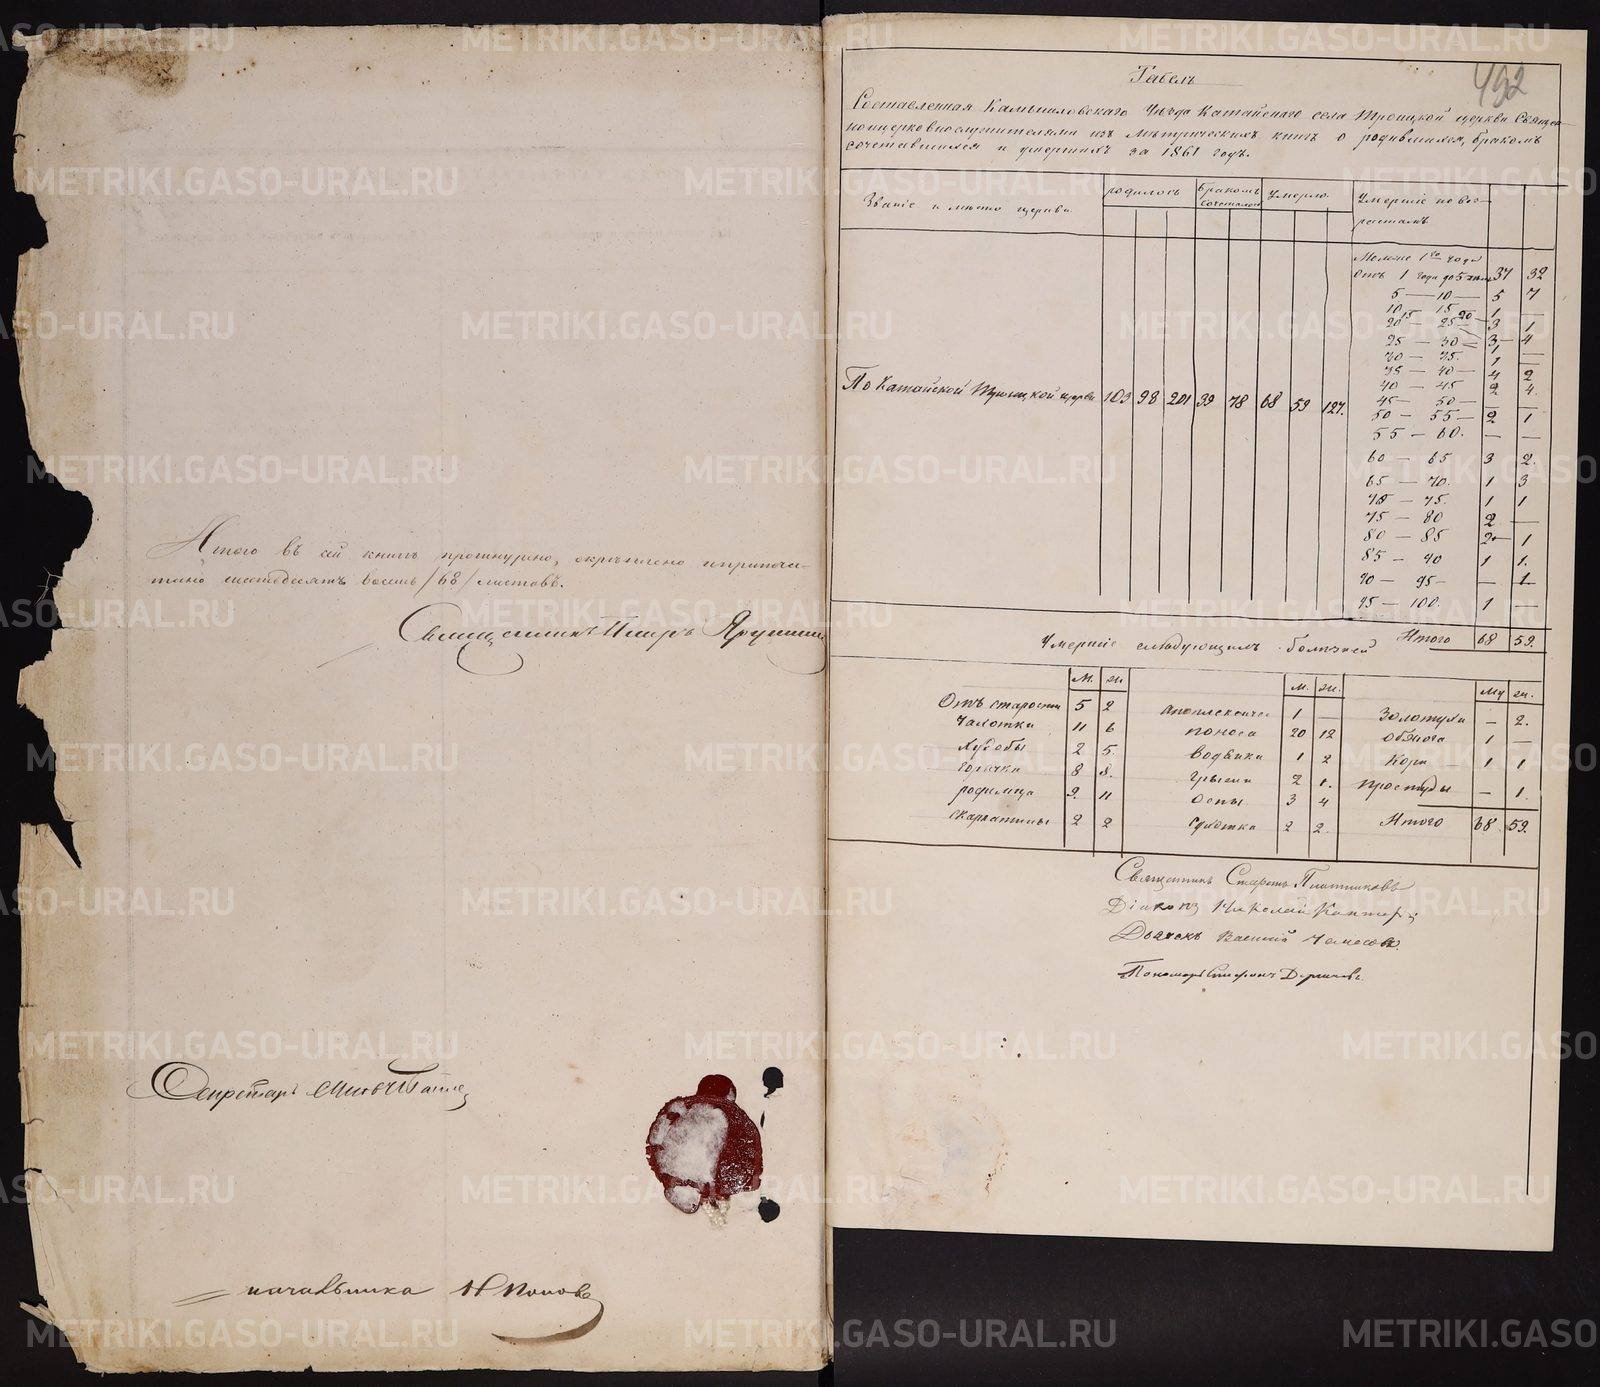 Итого въ сей книгѣ прошнурено, скрѣплено и припеча-
тано шестьдесятъ восемь /68/ листовъ.
Священникъ Петръ
Секретарь
начальника Н Попова
492
Табель
Составленная Камышловскаго Уѣзда Катайскаго села Троицкой церкви Священ-
ноцерковнослужителями изъ метрическихъ книгъ о родившихся, бракомъ
сочетавшихся и умершихъ за 1861 годъ.
Званіе и мѣсто церкви
родилось
бракомъ сочеталось
умерло
Умершіе по воз-
растамъ
Моложе 1го года
Отъ 1 года до 5 37 32
5 — 10 — 5 7
10 15 1 —
15 20 — 3 1
20 — 25 — 3 — 4
25 — 30 — 1 —
30 — 35. 1 —
35 — 40 — 4 2
40 — 45 2 4
45 — 50 — — —
50 — 55 — 2 1
55 — 60. — —
60 — 65 3 2.
65 — 70. 1 3
70 — 75. 1 1
75 — 80 2 —
80 — 85 2 — 1
85 — 90 1 1.
90 — 95 — — 1
95 — 100. 1 —
По Катайской Троицкой церкви 103 98 201 39 78 68 59 127.
Итого 68 59.
Умершіе слѣдующимъ болѣзней
м. ж. м. ж. му ж.
Отъ старости 5 2
Чахотки 11 6
Худобы 2 5.
горячки 8 8.
родимца 9. 11
скарлатины 2 2
1 —
поноса 20 12
Водянка 1 2
грыжи 2 1.
Оспы 3 4
Сухотка 2 2.
Золотухи — 2.
обжога 1 —
Кори — 1 1
Простуды — 1.
Итого 68 59.
Священникъ
Діаконъ Николай
Дьячекъ Василій
Пономарь Стефанъ
METRIKI.GASO-URAL.RU